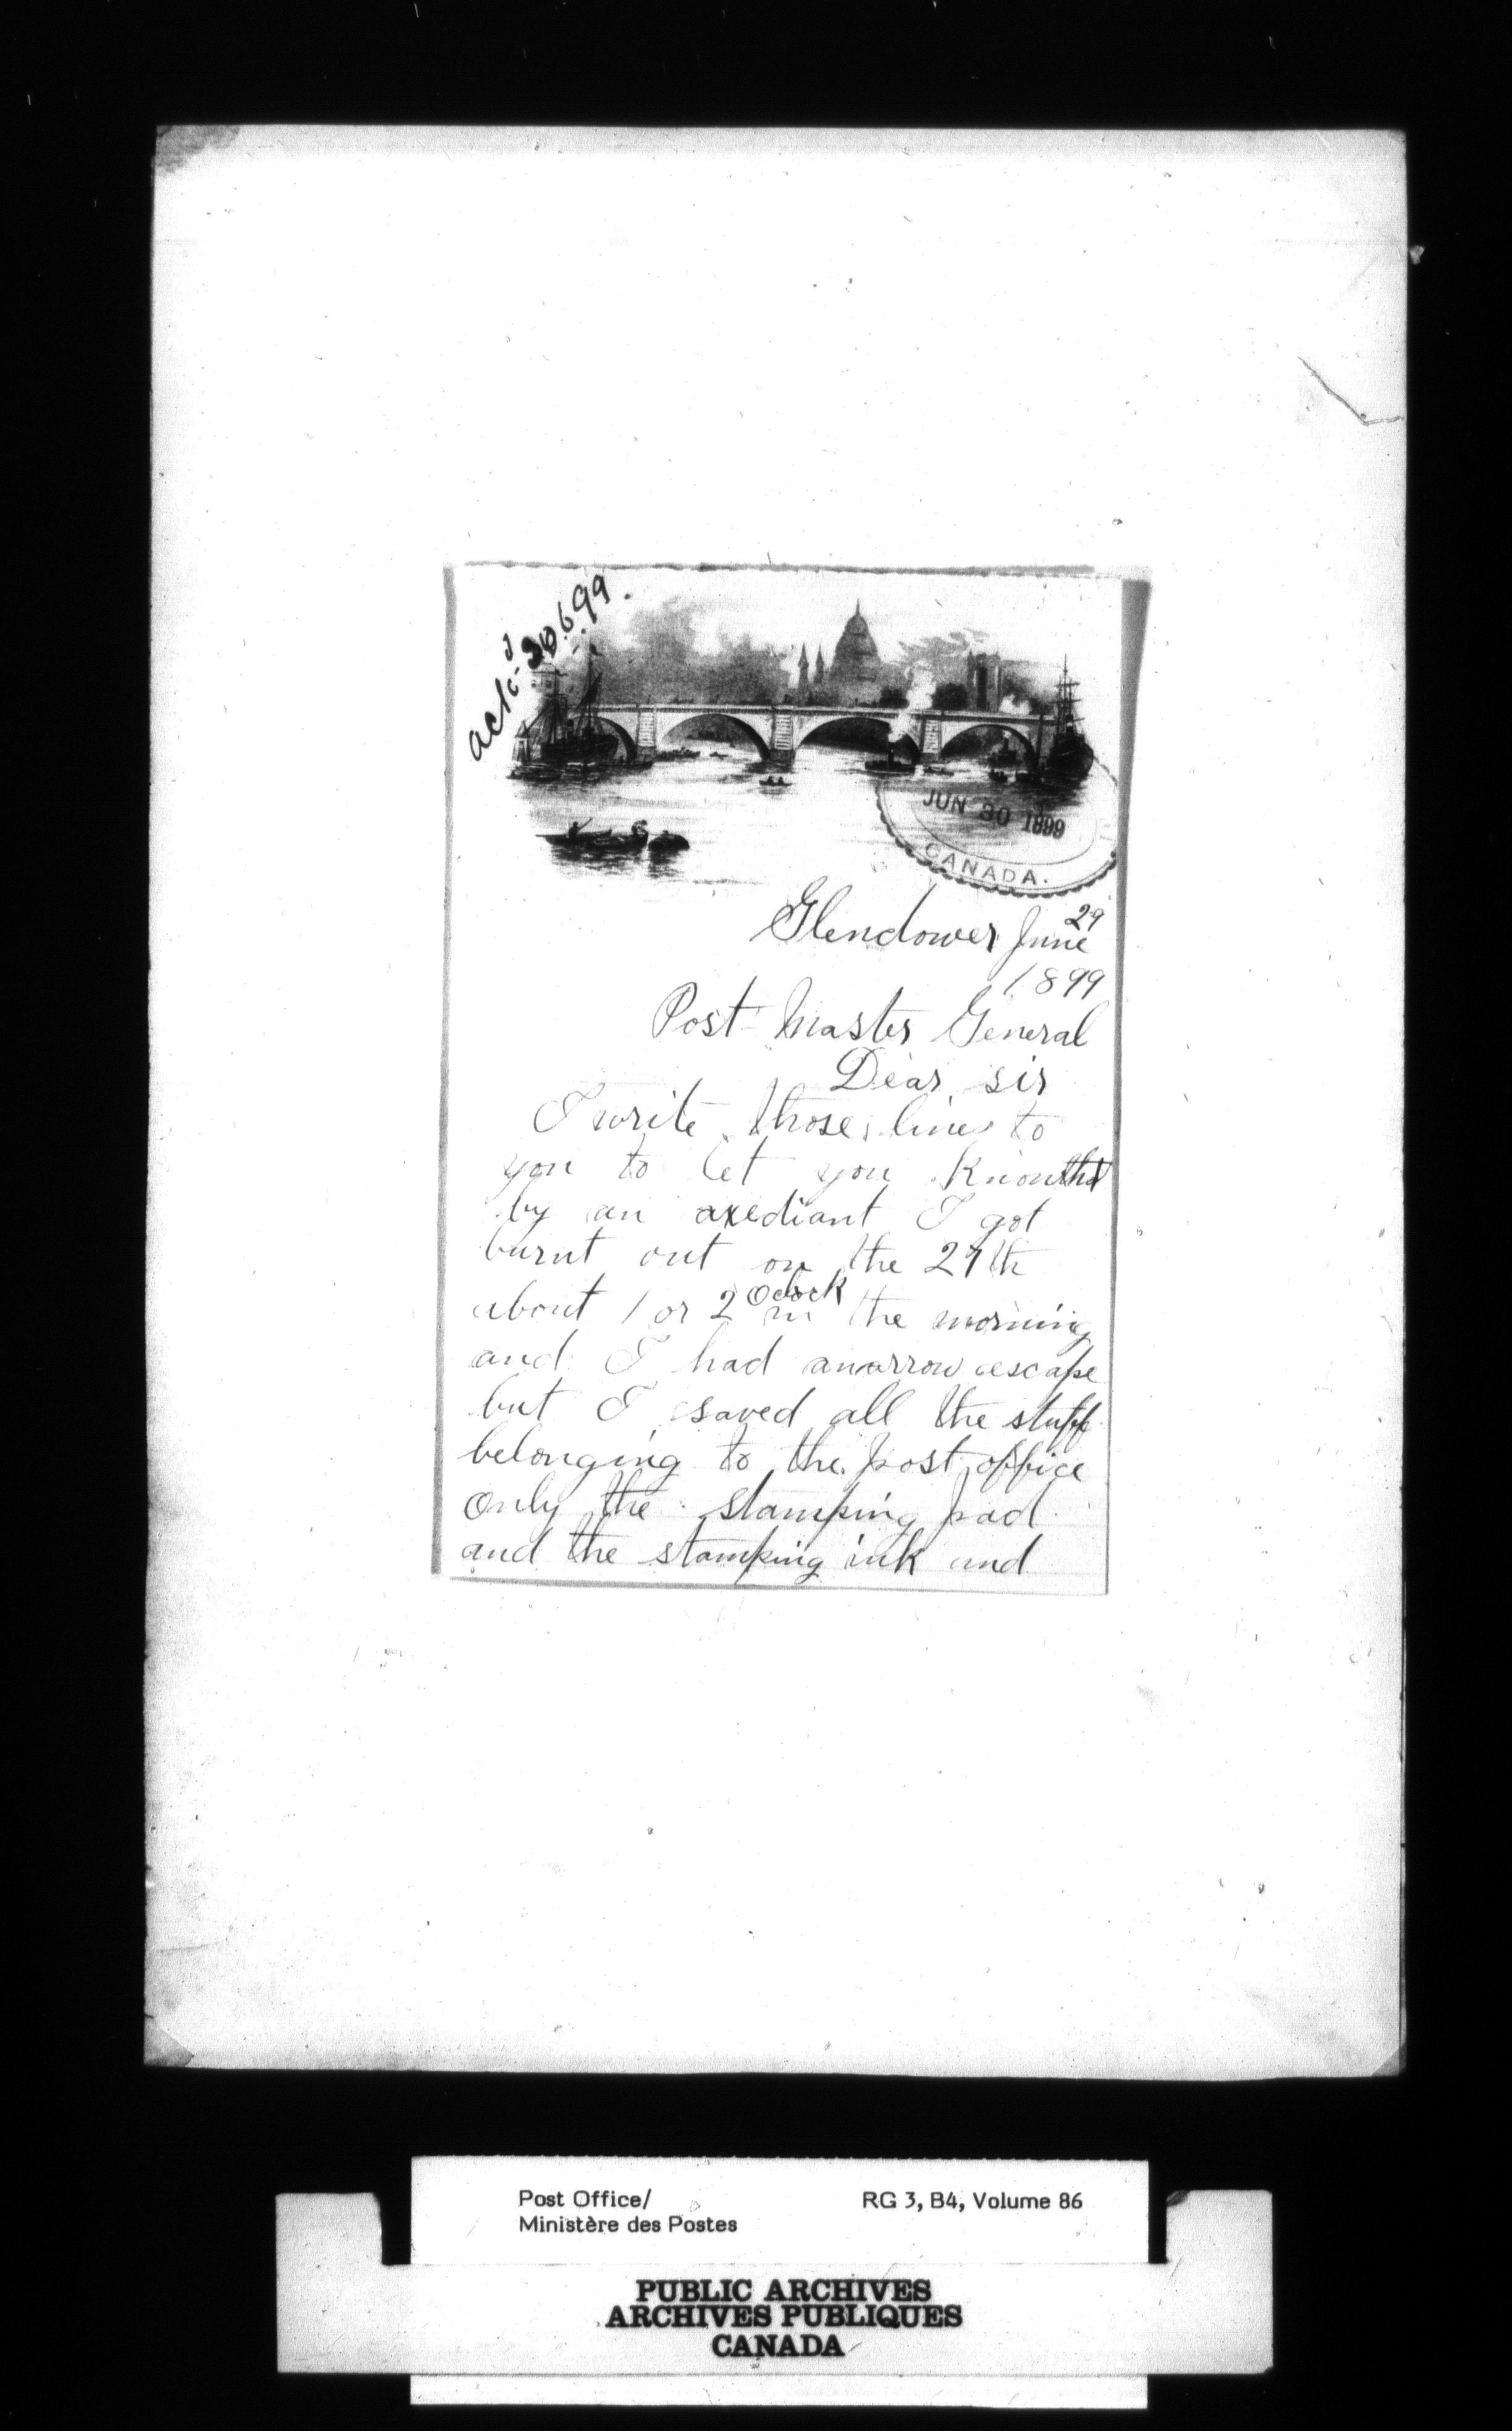 ackd 30.6.99.
JUN 30 1899
CANADA.
Glendower June 29
1899
Post Master General
Dear sir
I write those lines to
you to let you know that
by an axediant I got
burnt out on the 27th
about 1 or 2 Oclock in the morning
and I had anarrow escape
but I saved all the stuff
belonging to the post office
only the stamping pad
and the stamping ink and
Post Office/
Ministère des Postes
RG 3, B4, Volume 86
PUBLIC ARCHIVES
ARCHIVES PUBLIQUES
CANADA